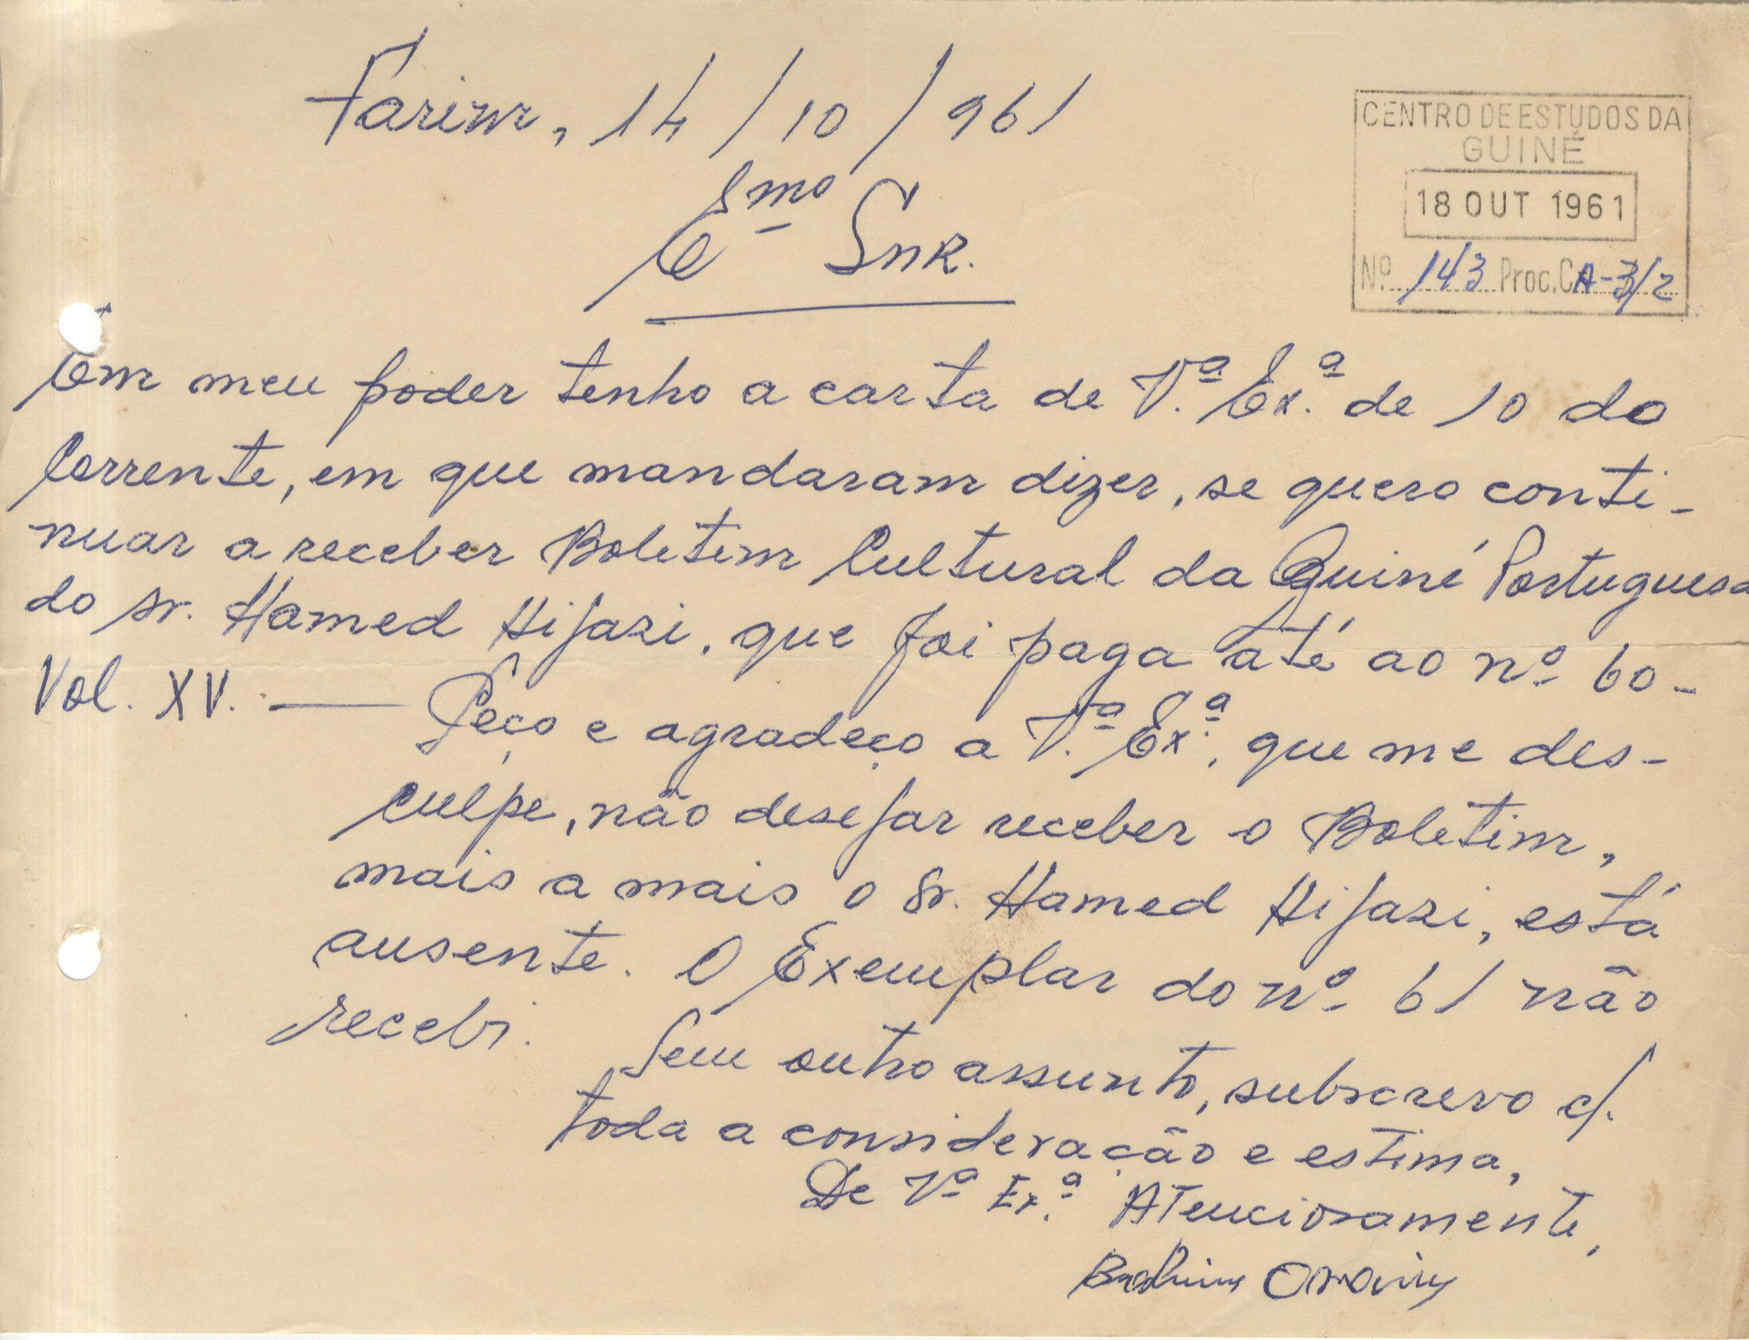 Farim, 14/10/961
CENTRO DE ESTUDOS DA
GUINÉ
18 OUT 1961
Nº 143 Proc. CA-3/2
Emo Snr.
Em meu poder tenho a carta de V.ª Ex.ª de 10 do
Corrente, em que mandaram dizer, se quero conti-
nuar a receber Boletim Cultural da Guiné Portuguesa
do sr. Hamed Hijazi, que foi paga até ao nº 60-
Vol. XV. — Peço e agradeço a V.ª Ex.ª, que me des-
culpe, não desejar receber o Boletim,
mais a mais o Sr. Hamed Hijazi, está
ausente. O Exemplar do nº 61 não
recebi. Sem outro assunto, subscrevo c/.
toda a consideração e estima,
De Vª Ex.ª Atenciosamente,